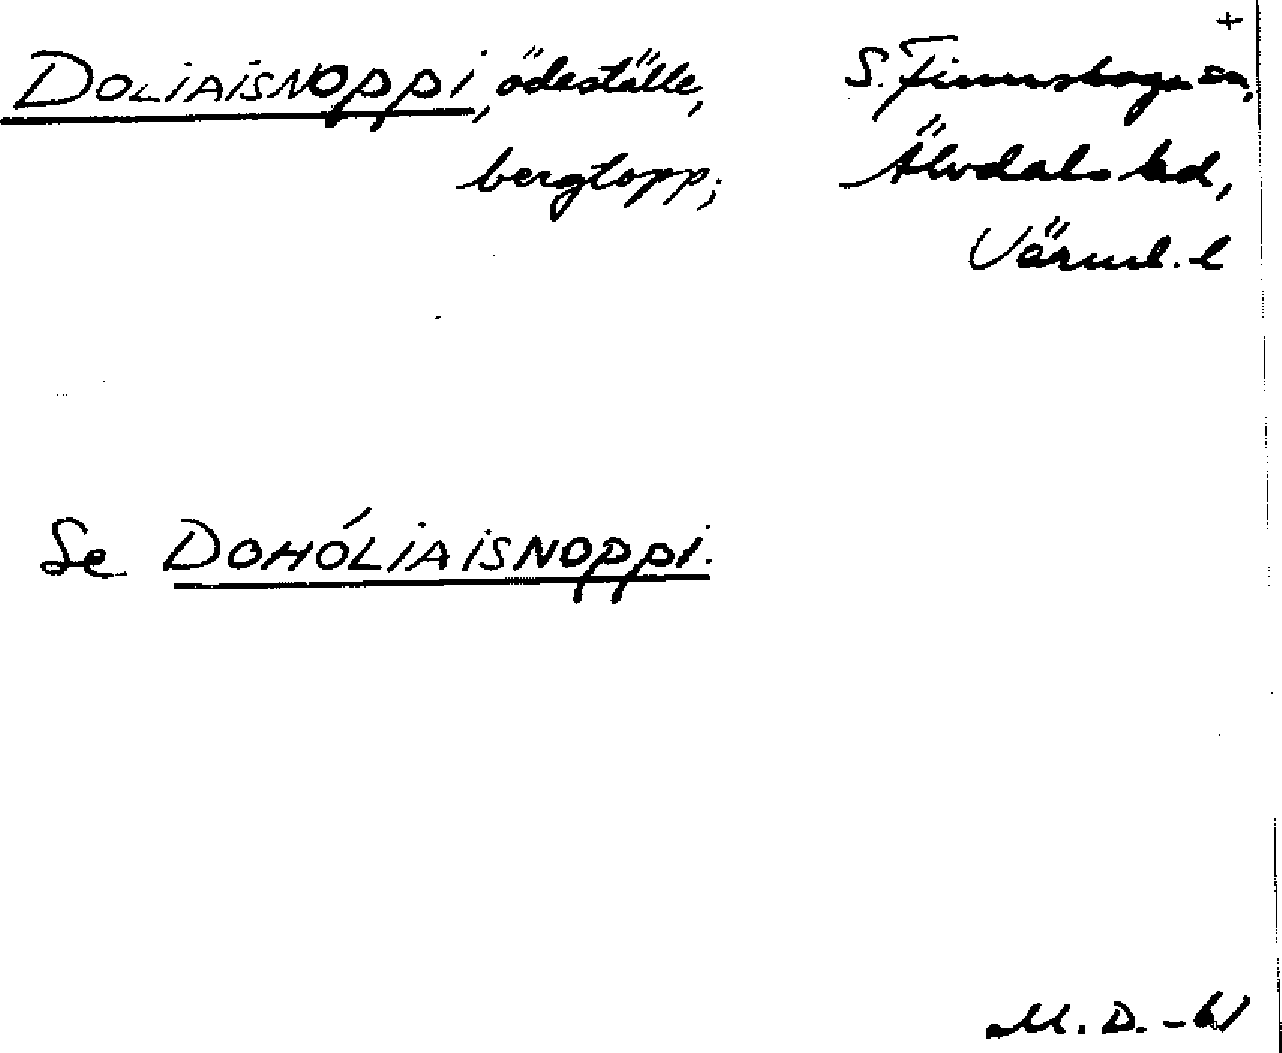 +
DOLIAISNOPPI, ödeställe, S. Finnskoga sn,
bergtopp; Älvdals hd,
Värml. l
Se DOHÓLIAISNOPPI.
M. D. -61